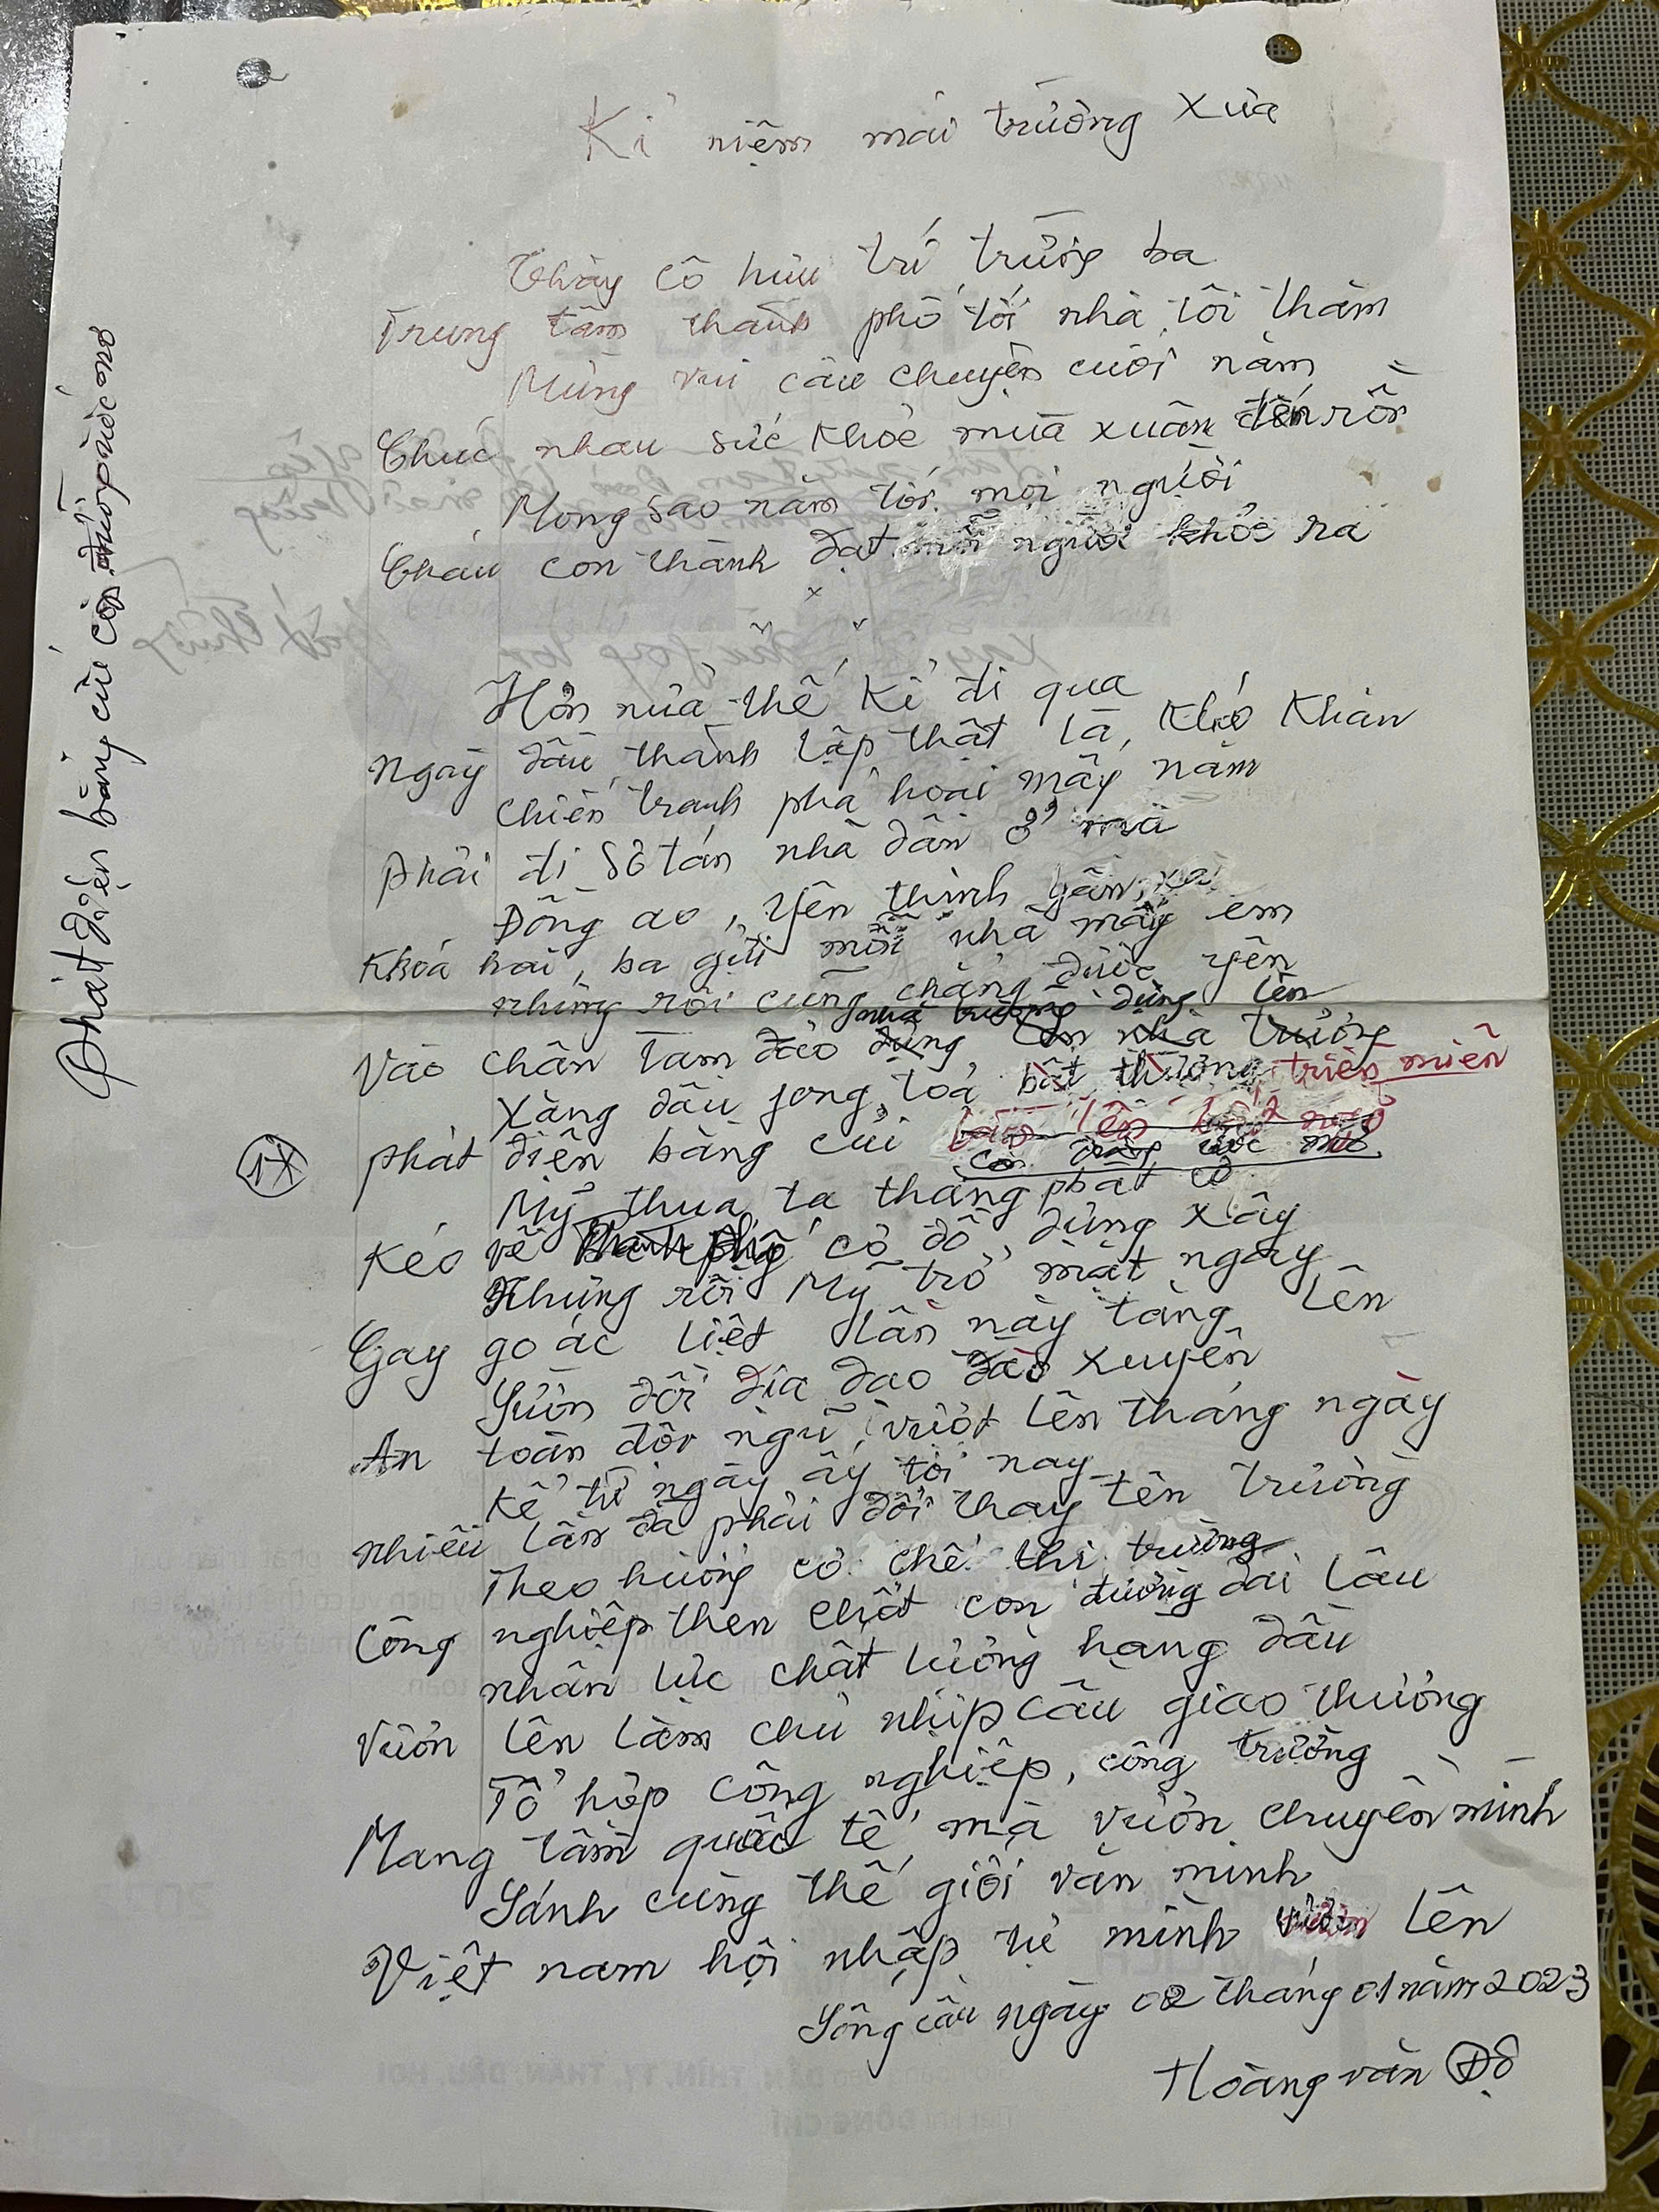 Kỉ niệm mái trường xưa
Thầy cô hưu trí trường ba
Trung tâm thành phố tới nhà tôi thăm
Mừng vui câu chuyện cuối năm
Chúc nhau sức khỏe mùa xuân đến rồi
Mong sao năm tới mọi người
Cháu con thành đạt người khỏe ra
Hơn nửa thế kỉ đi qua
Ngày đầu thành lập thật là khó khăn
Chiến tranh phá hoại mấy năm
Phải đi sơ tán nhà dân ở mà
Đồng ao, Yên thịnh gần xa
Khoá hai, ba gửi mỗi nhà mấy em
Nhưng rồi cũng chẳng được yên
nhà trường dựng lên
Vào chân Tam đảo dựng lên nhà trường
Xăng dầu phong toả bất thường triền miên
1* phát điện bằng củi
còn ước mơ
Mỹ thua ta thắng phất cờ
Kéo về thành phố cờ đỏ dựng xây
Nhưng rồi Mỹ trở mặt ngay
Gay go ác liệt lần này tăng lên
Sườn đồi địa đạo đào xuyên
An toàn đội ngũ vượt lên tháng ngày
Kể từ ngày ấy tới nay
Nhiều lần đã phải đổi thay tên trường
Theo hướng cơ chế thị trường
Công nghiệp then chốt con đường dài lâu
Nhân lực chất lượng hàng đầu
Vươn lên làm chủ nhịp cầu giao thương
Tổ hợp công nghiệp, công trường
Mang tầm quốc tế mà vươn chuyển mình
Sánh cùng thế giới văn minh
Việt nam hội nhập tự mình vươn lên
Sông cầu ngày 02 tháng 01 năm 2023
Hoàng văn Độ
Phát điện bằng củi còn đường ước mơ